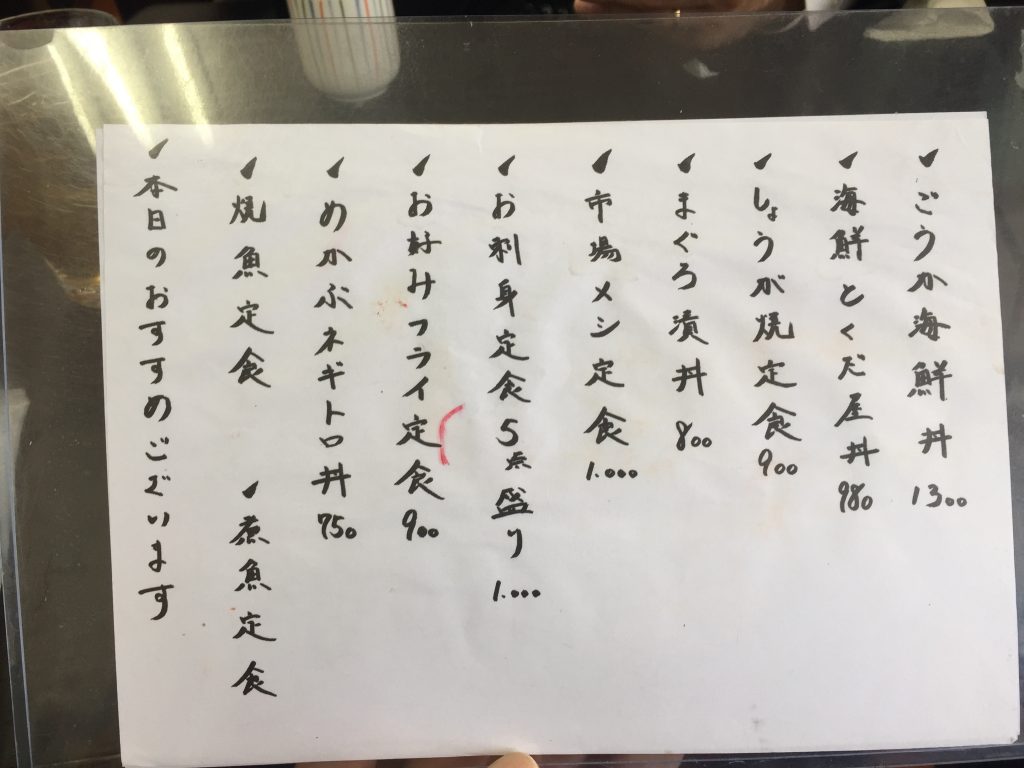 ごうか海鮮丼 1300
海鮮とくだ屋丼 980
しょうが焼定食 900
まぐろ漬丼 800
市場メシ定食 1.000
お刺身定食5点盛り 1.000
お好みフライ定食 900
めかぶネギトロ丼 750
焼魚定食 煮魚定食
本日のおすすめございます